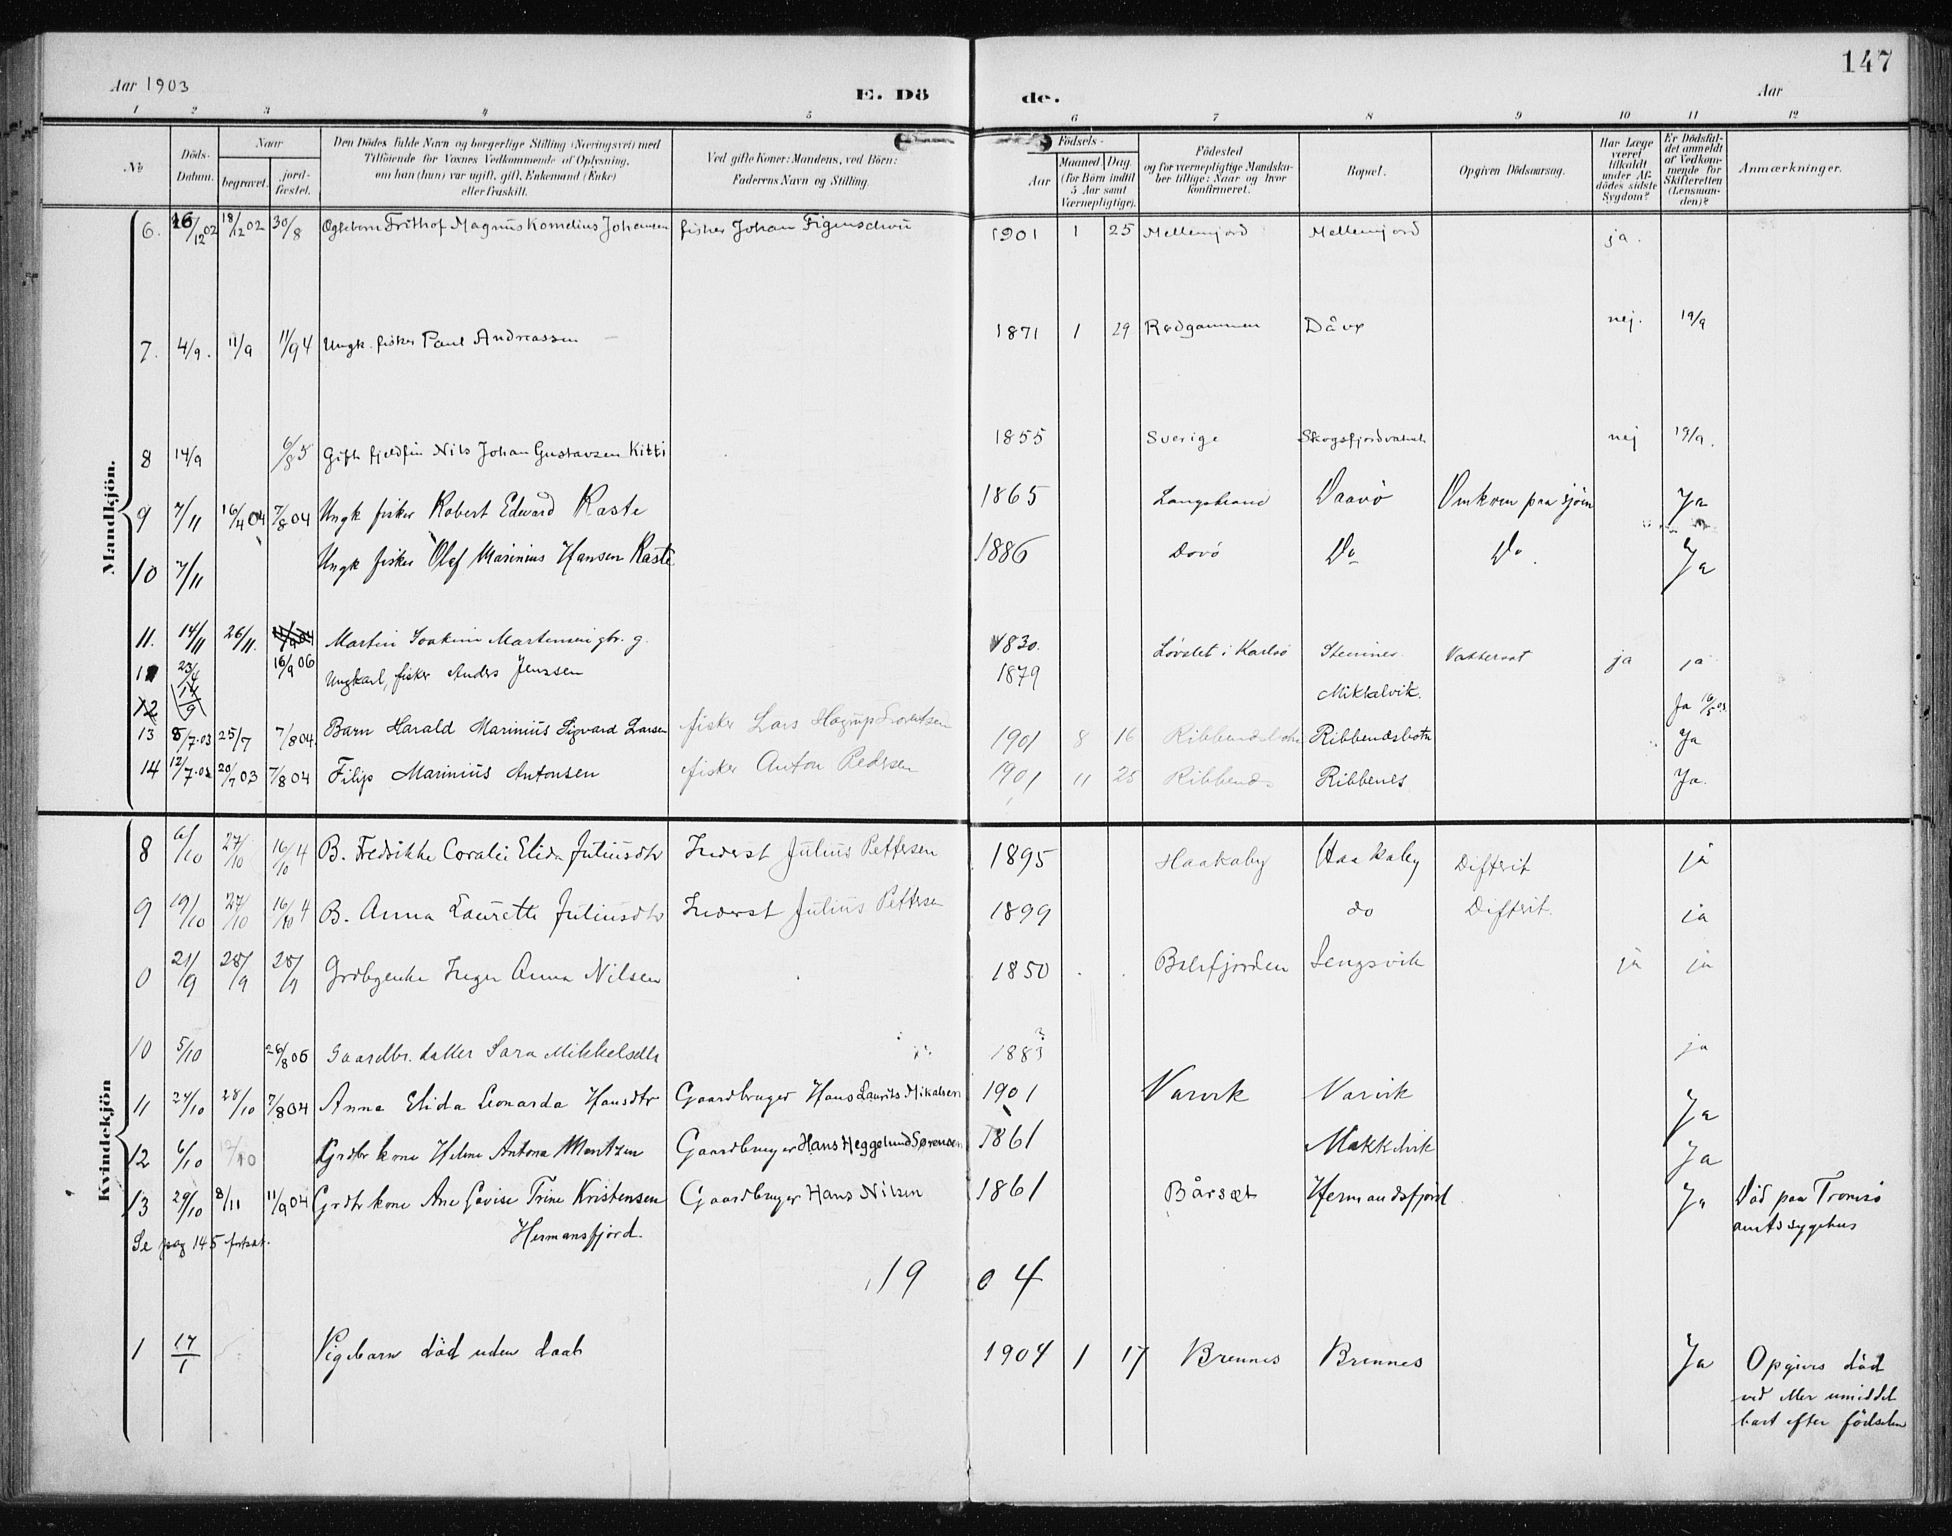 147
Aar 1903 E. Dö de. Aar
1 2 3 4 5 6 7 8 9 10 11 12
No Döds-Datum. Naar begravet. jord-fæstet. Den Dödes fulde Navn og borgerlige Stilling (Næringsvei) med Tilföiende for Voxnes Vedkommende af Oplysning, om han (hun) var ugift, gift, Enkemand (Enke) eller fraskilt. Ved gifte Koner: Mandens, ved Börn: Faderens Navn og Stilling. Födsels- Aar Maaned. Dag. (for Börn indtil 5 Aar samt Værnepligtige). Födested og for værnepligtige Mandskaber tillige: Naar og hvor konfirmeret. Bopæl. Opgiven Dödsaarsag. Har Læge været tilkaldt under Afdödes sidste Sygdom? Er Dödsfaldet anmeldt af Vedkommende for Skifteretten (Lensmanden)? Anmærkninger.
Mandkjön.
6. 16/12 02 18/12 02 30/8 Frithof Magnus Kornelius Johansen fisker Johan Figenschou 1901 1 25 Mellemjord Mellemjord ja.
7. 4/9. 11/9 11/9 4 Ungk. fisker Paul Andreassen 1871 1 29 Rødgammen Dåvø nej. 19/9
8 14/9 6/8 5 Gift fjeldfin Nils Johan Gustavsen Kitti 1855 Sverige Skogsfjordvatnet nej 19/9.
9 7/11 16/4 04 7/8 04 Ungk fisker Robert Edvard Raste 1865 Langstrand Daavö Omkom paa sjöen Ja
10 7/11 Ungk fisker Olaf Marinius Hansen Raste 1886 Dovö Do Do. Ja
11. 14/11 26/11. Martin Joakim Martensen gbr. g. 1830. Løvslet i Karlsø Steinnes Vattersot ja ja
23/4 16/9 06 Ungkarl, fisker Anders Jenssen 1879 Mikkelvik.
12 14/9 Ja
13 8/7.03 25/7 7/8 04. Barn Harald Marinius Sigvard Larsen fisker Lars Hagrup Lorentsen 1901 8 16 Ribbenesbotn Ribbenesbotn Ja
14 12/7.03 20/7 03 7/8 04 Filip Marinius Antonsen fisker Anton Pedersen 1901 11 25 Ribbenes Ribbenes Ja.
Kvindekjön
8 6/10 27/10 16/10 4 B. Fredrikke Coralie Elida Juliusdtr Inderst Julius Pettersen 1895 Haakøby Haakøby Difterit ja
9 19/10 27/10 16/10 4 B. Anna Laurette Juliusdtr Inderst Julius Pettersen 1899 do Difterit. ja
0 21/9 28/9 28/9 Grdbgenke Inger Anna Nilsen 1850 Balsfjorden Lengsvik ja ja
10 5/10 26/8 06 Gaardbr. datter Sara Mikkelsdtr 1883 ? ja
11 24/10 28/10 7/8 04 Anna Elida Leonarda Hansdtr Gaardbruger Hans Laurits Mikalsen 1901 Varvik Varvik Ja
12 6/10 Grdbr kone Helene Antona Mentzen Gaardbruger Hans Heggelund Sørensen 1861 Mikkelvik Ja
13 29/10 8/11 11/9 04 Grdbr kone Ane Lovise Trine Kristensen Gaardbruger Hans Nilsen 1861 Bårsæt Hermandsfjord Ja Död paa Tromsö
Se pag 145 fortsat. Hermansfjord. amtssygehus
19 04
1 17/1 Pigebarn död uden daab 1904 1 17 Brennes Brennes Ja Opgives död
ved eller umiddel
bart efter födselen